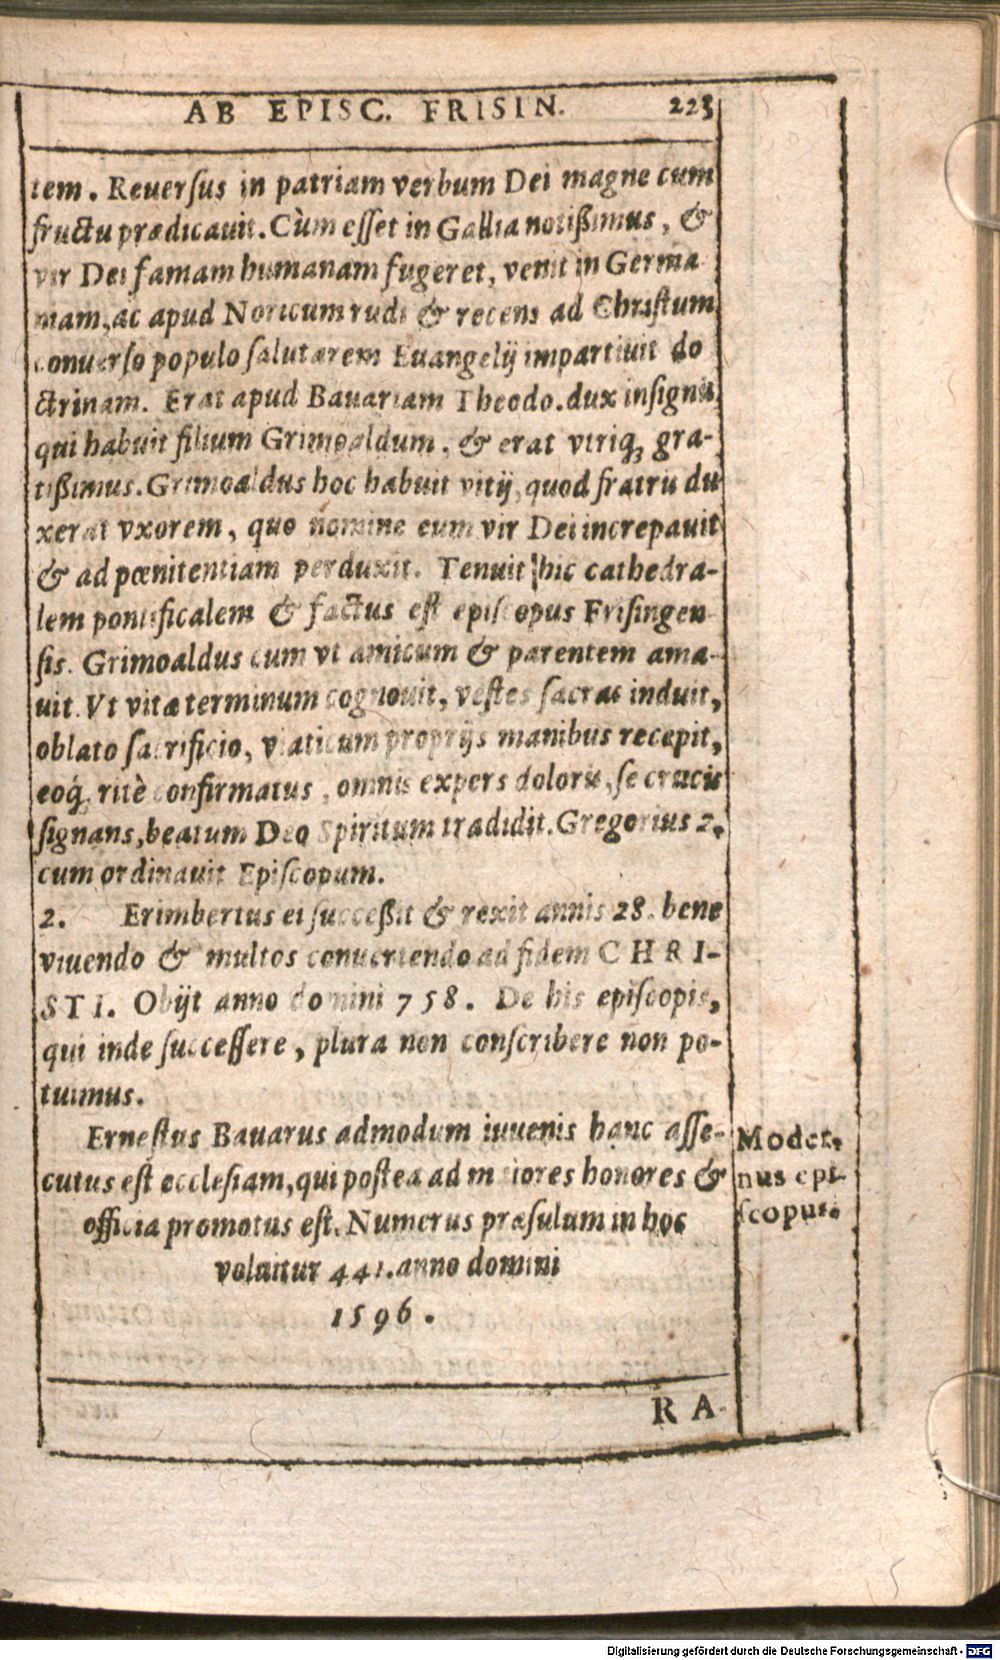 AB EPISC. FRISIN. 223
tem. Reuerſus in patriam verbum Dei magne cum
fructu prædicauit. Cùm eſſet in Gallia notißimus, &
vir Dei famam humanam fugeret, venit in Germa
niam, ac apud Noricum rudi & recens ad Chriſtum
conuerſo populo ſalutarem Euangelij impartiuit do
ctrinam. Erat apud Bauariam Theodo. dux inſignis,
qui habuit filium Grimoaldum, & erat vtriq; gra-
tißimus. Grimoaldus hoc habuit vitij, quod fratris du
xerat vxorem, quo nomine eum vir Dei increpauit
& ad pœnitentiam perduxit. Tenuit hic cathedra-
lem pontificalem & factus eſt epiſcopus Friſingen
ſis. Grimoaldus cum vt amicum & parentem ama-
uit. Vt vitæ terminum cognouit, veſtes ſacras induit,
oblato ſacrificio, viaticum proprijs manibus recepit,
eoq́; ritè confirmatus, omnis expers doloris, ſe crucis
ſignans, beatum Deo Spiritum tradidit. Gregorius 2.
cum ordinauit Epiſcopum.
2. Erimbertus ei ſucceßit & rexit annis 28. bene
viuendo & multos conuertendo ad fidem CHRI-
STI. Obijt anno domini 758. De his epiſcopis,
qui inde ſucceſſere, plura non conſcribere non po-
tuimus.
Erneſtus Bauarus admodum iuuenis hanc aſſe-
cutus eſt eccleſiam, qui poſtea ad maiores honores &
officia promotus eſt. Numerus præſulum in hoc
voluitur 441. anno domini
1596.
Moder-
nus epi-
ſcopus.
RA
Digitalisierung gefördert durch die Deutsche Forschungsgemeinschaft - DFG